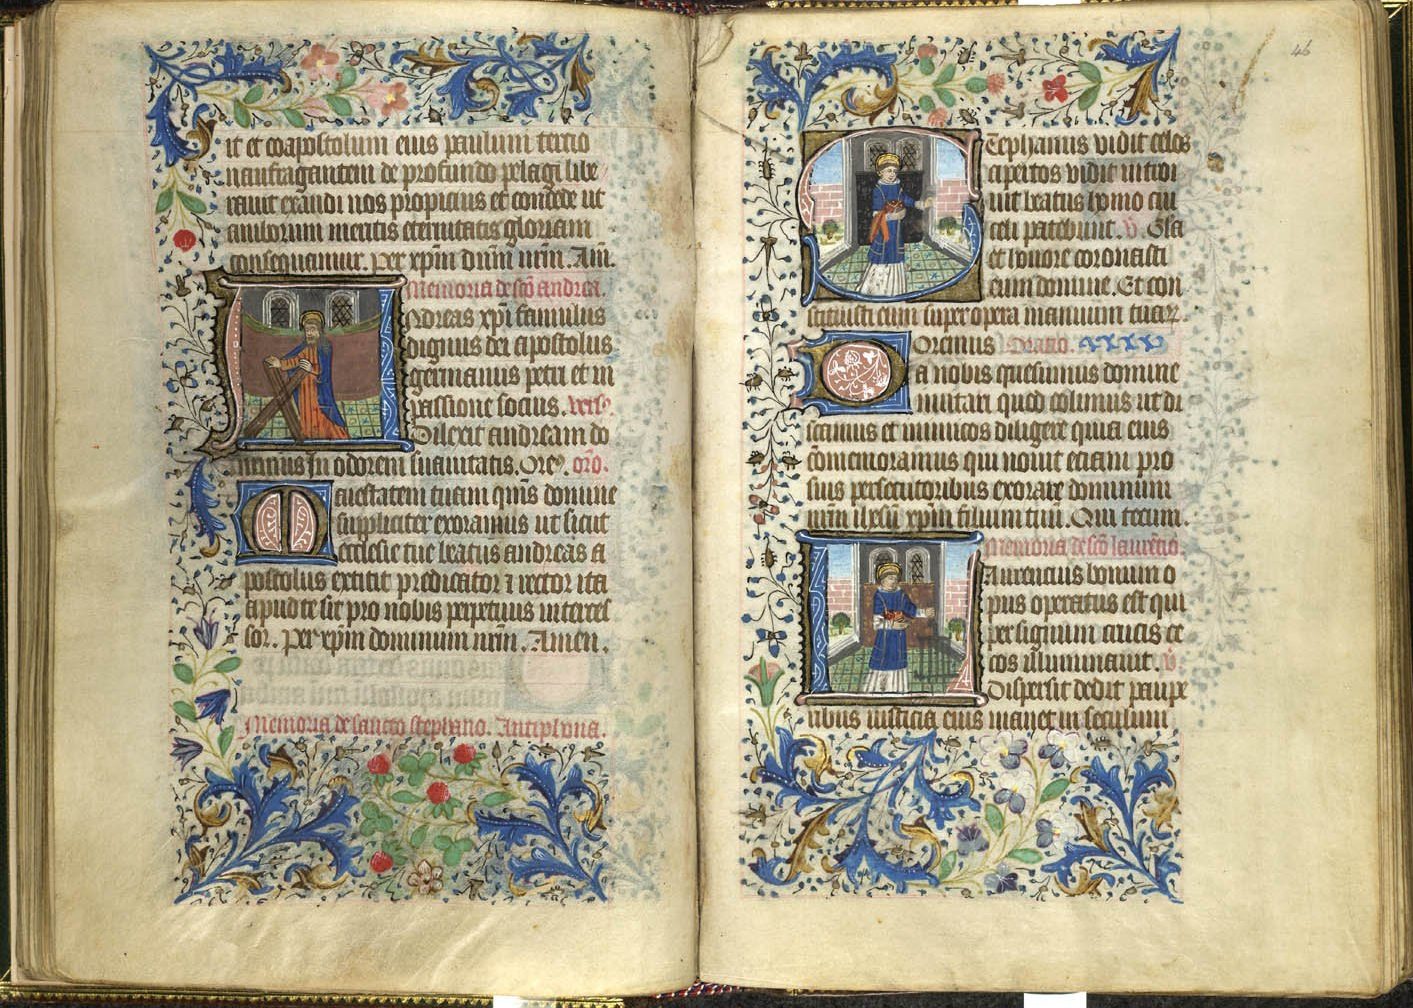 it et coapostolum eius paulum tercio
naufragantem de profundo pelagi libe
rauit exaudi nos propicius et concede ut
amborum meritis eternitatis gloriam
consequamur. per xp̄m dn̄m nr̄m. Am̄.
Memoria de sc̄o andrea.
Andreas xp̄i famulus
dignus dei apostolus
germanus petri et in
passione socius. vers᷒.
Dilexit andream do
minus In odorem suauitatis. Ore᷒. or̄o.
Maiestatem tuam qm̄s domine
suppliciter exoramus ut sicut
ecclesie tue beatus andreas a
postolus extitit predicator ⁊ rector ita
apud te sit pro nobis perpetuus interces
sor. Per xp̄m dominum nr̄m. Amen.
Memoria de sancto stephano. Antiphona.
46
Stephanus vidit celos
apertos vidit introi
uit beatus homo cui
celi patebunt. v̄. Glā
et honore coronasti
eum domine. Et con
stituisti eum super opera manuum tuaꝝ.
Oremus Oratio.
Da nobis quesumus domine
imitari quod colimus ut di
scamus et inimicos diligere quia eius
cōmemoramus qui nouit etiam pro
suis persecutoribus exorare dominum
nr̄m ih̄esū xp̄m filium tuū. Qui tecum.
Memoria de sc̄o laurētio.
Laurencius bonum o
pus operatus est qui
per signum crucis ce
cos illuminauit. v̄
Dispersit dedit paupe
ribus iusticia eius manet in seculum